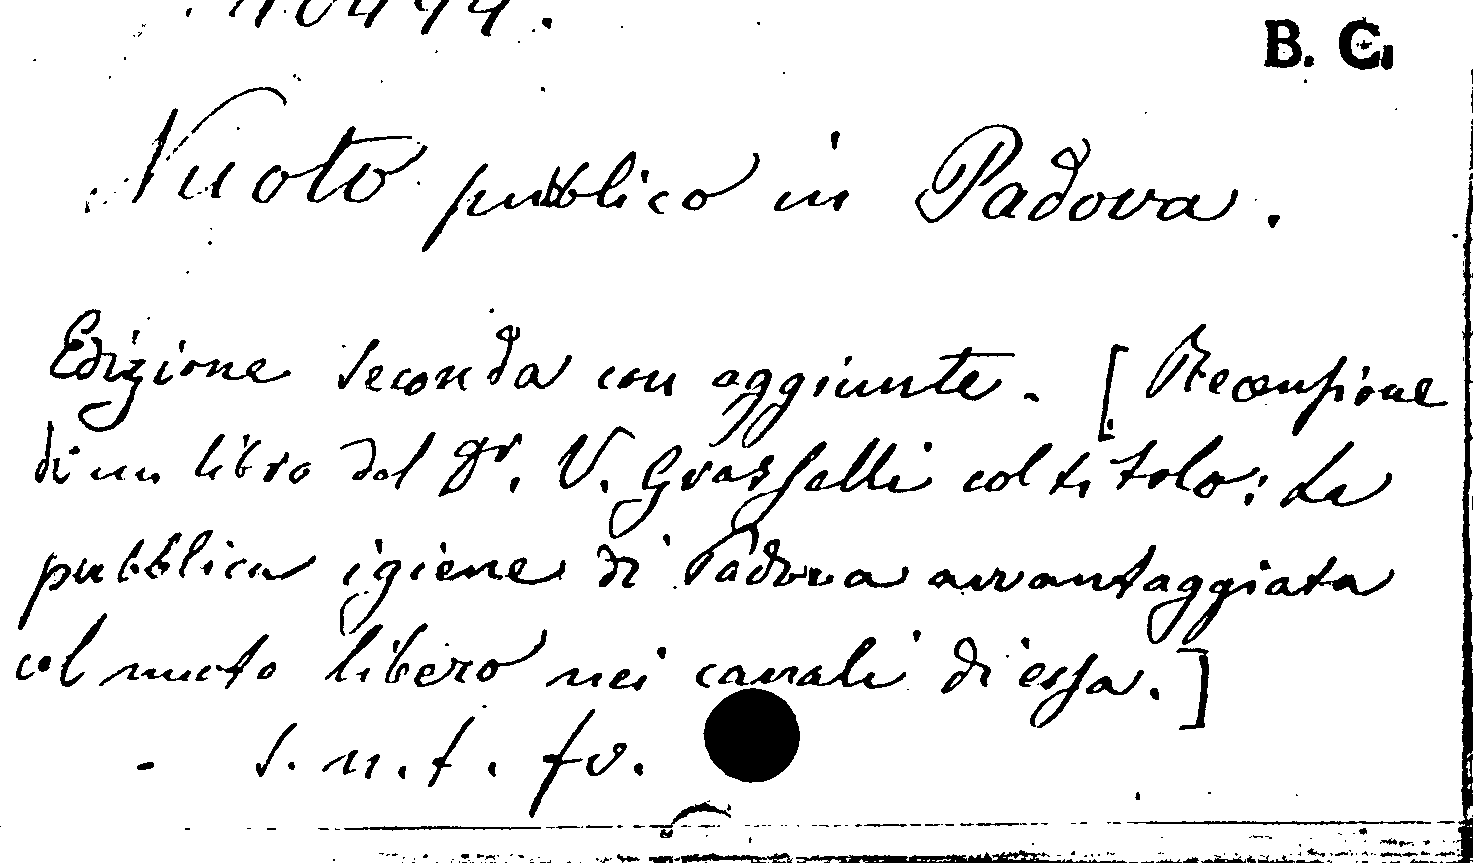 B. C.
Nuoto pubblico in Padova.
Edizione seconda con aggiunte. [Recensione
di un libro del Dr. V. Grasselli col titolo: La
pubblica igiene di Padova avvantaggiata
col nuoto libero nei canali di essa.]
- s. n. t. fo.